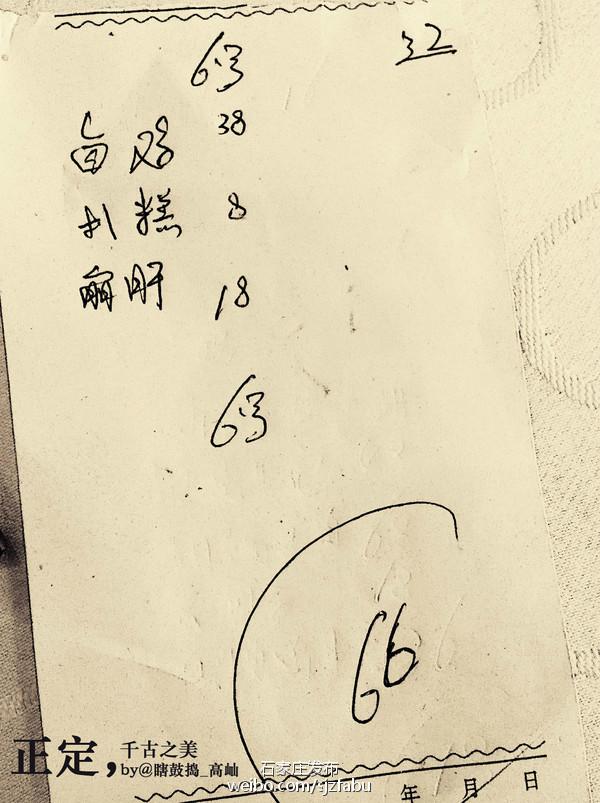 6号 32
卤鸡 38
扒糕 8
崩肝 18
6号
66
年 月 日
正定,千古之美
by@瞎鼓捣_高屾
石家庄发布
weibo.com/sjzfabu